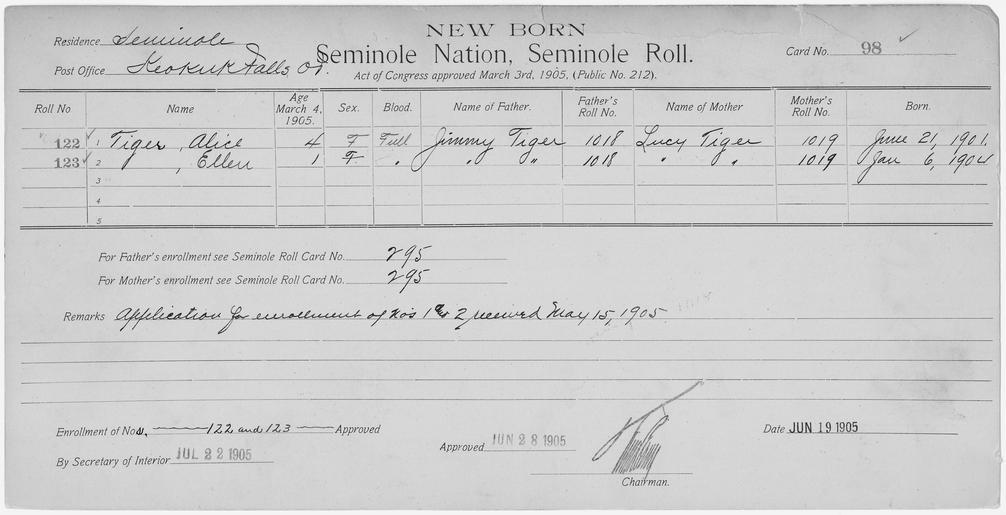 NEW BORN
Residence Seminole
Seminole Nation, Seminole Roll.
Card No. 98
Post Office Keokuk Falls O.T.
Act of Congress approved March 3rd, 1905, (Public No. 212).
Roll No Name Age March 4, 1905. Sex. Blood. Name of Father. Father's Roll No. Name of Mother Mother's Roll No. Born.
122 1 Tiger, Alice 4 F Full Jimmy Tiger 1018 Lucy Tiger 1019 June 21, 1901.
123 2 " , Ellen 1 F " " " 1018 " " 1019 Jan 6, 1904
3
4
5
For Father's enrollment see Seminole Roll Card No. 295
For Mother's enrollment see Seminole Roll Card No. 295
Remarks Application for enrollment of Nos 1 & 2 received May 15, 1905
Enrollment of Nos. 122 and 123 Approved
Date JUN 19 1905
Approved JUN 28 1905
By Secretary of Interior JUL 22 1905
Chairman.